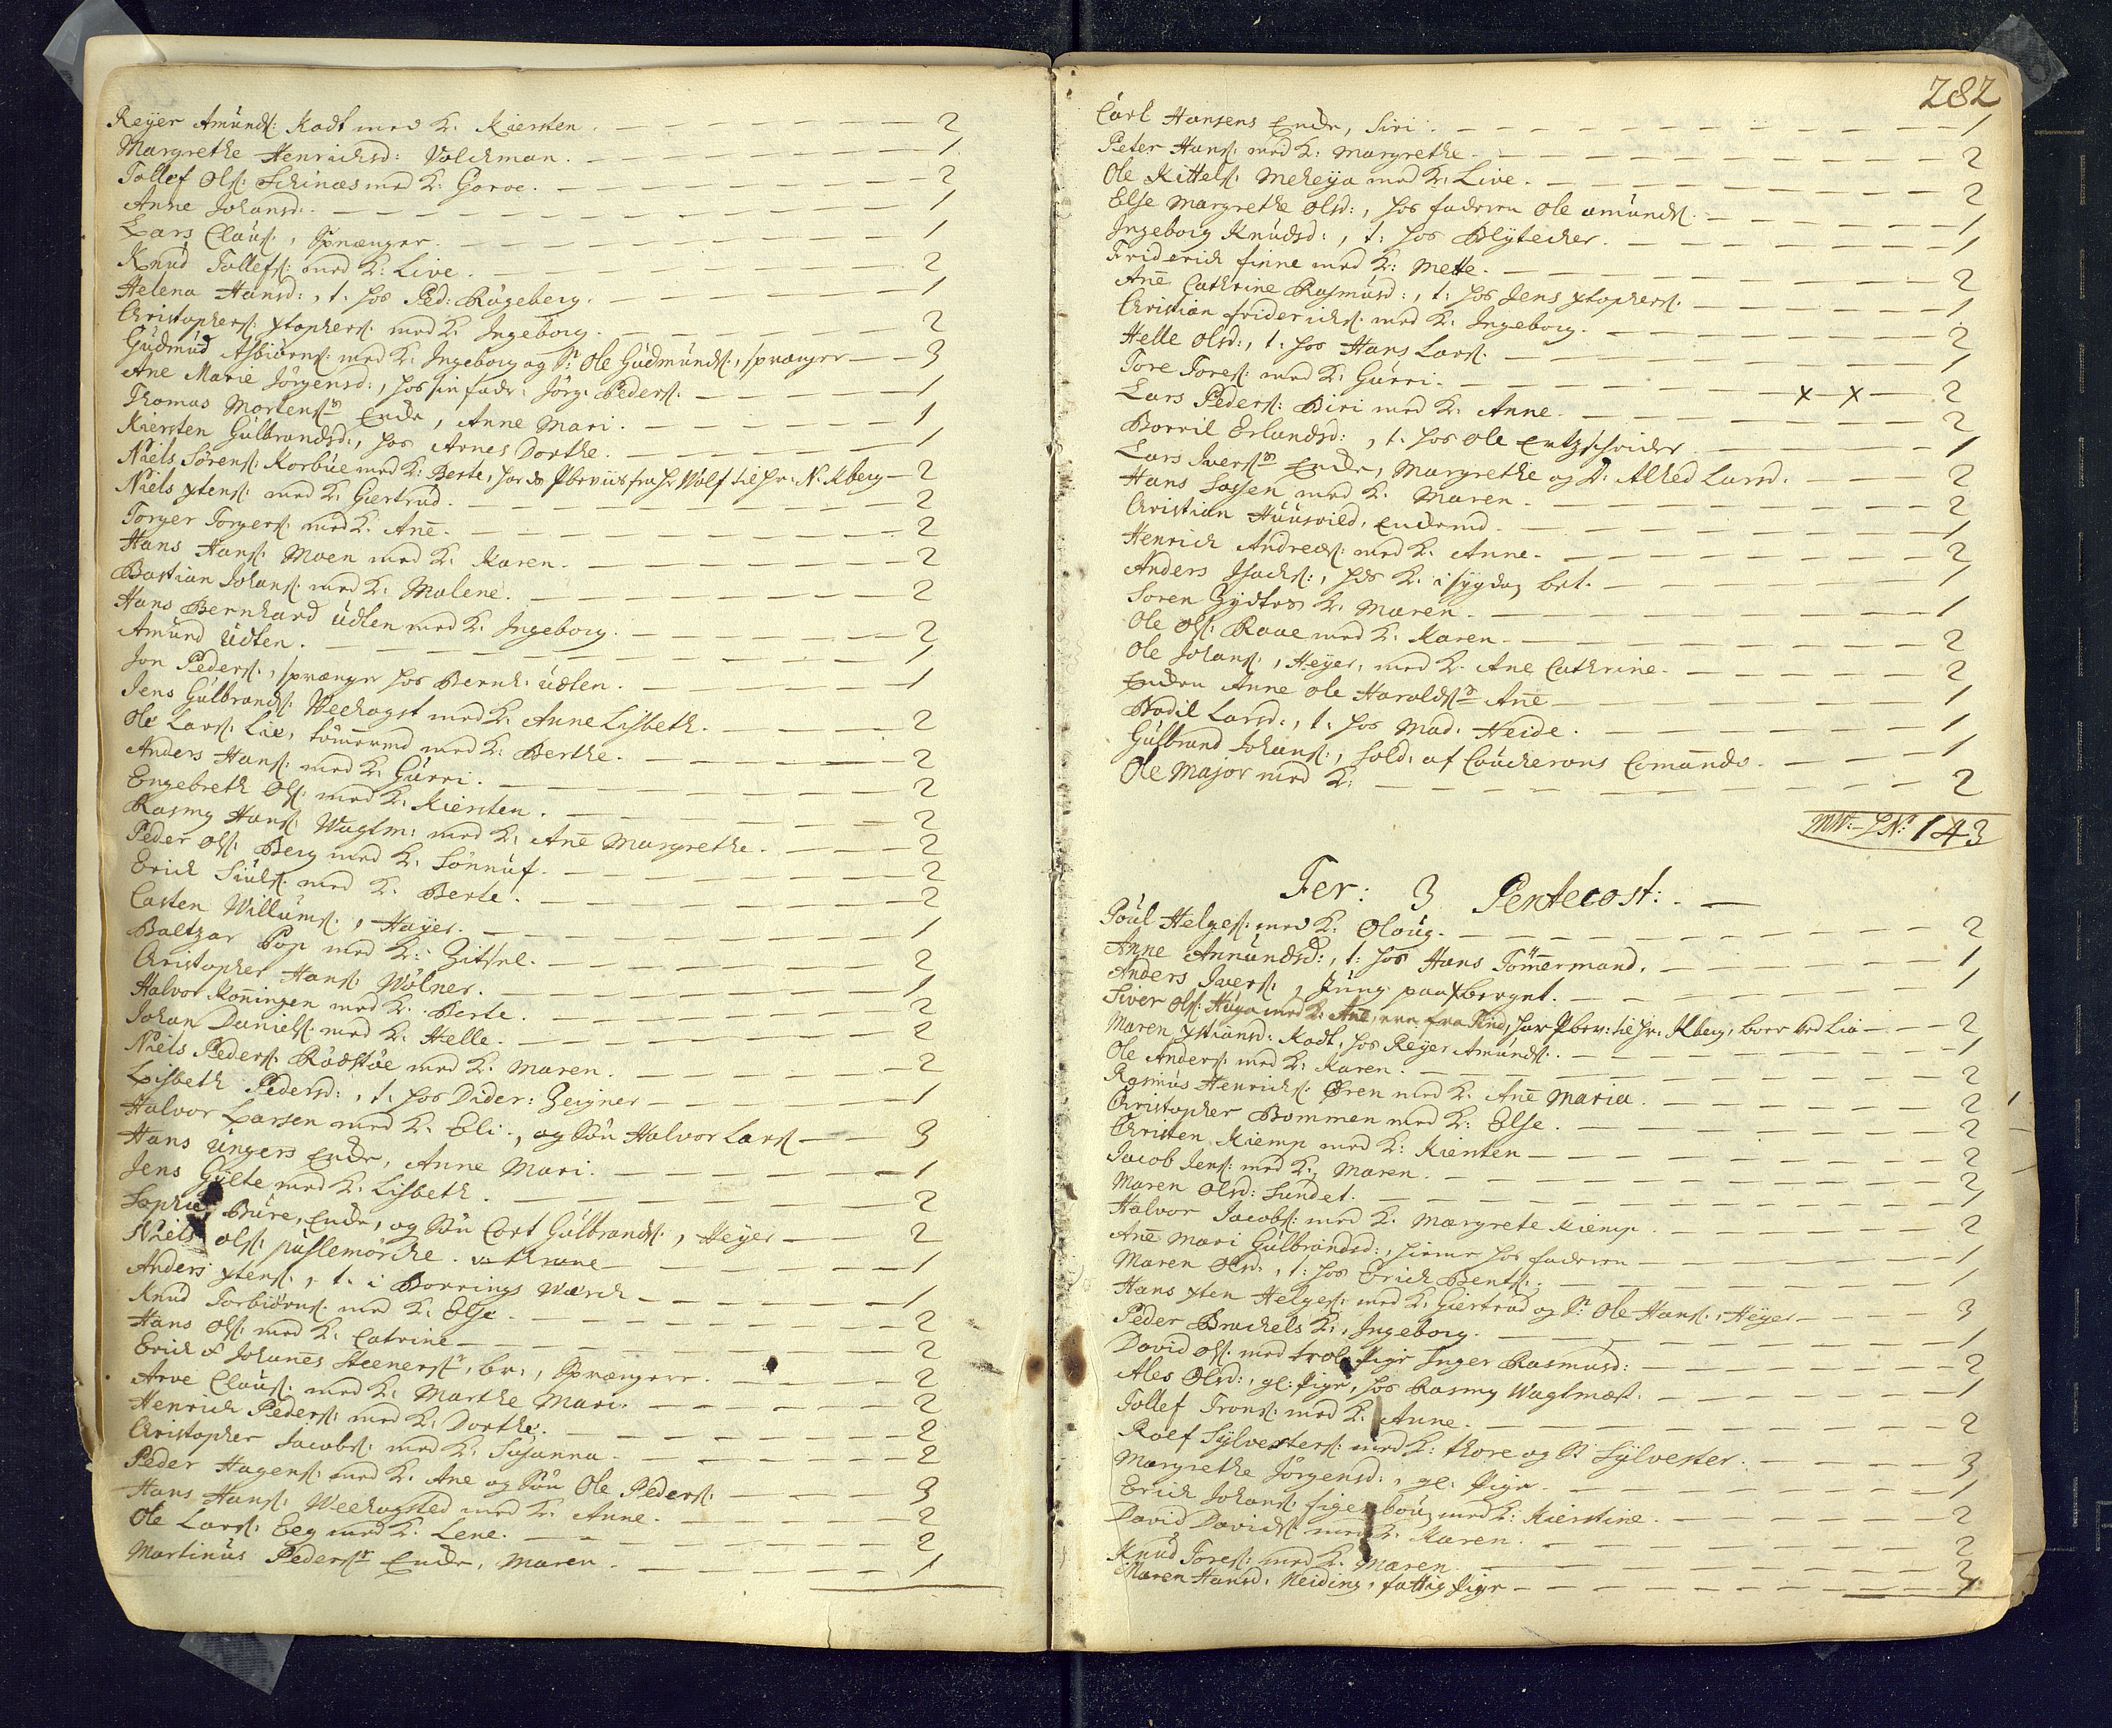 Reyer Amunds: Kadt med K. Kiersten. 2
Margrethe Henrichsd: Volckman. 1
Tollef Ols: Schinæs med K: Goroe. 2
Anne Johansd: 1
Lars Claus:, Sprænger. 1
Knud Tollefs: med K: Live. 2
Helena Hansd:, t: hos Ped: Rugeberg. 1
Christophers: xtophers: med K: Ingeborg. 2
Gudmud Asbiørns: med K: Ingeborg og S: Ole Gudmunds:, sprænger 3
Ane Marie Jörgensd:, hos sin fader Jörg: Peders: 1
Thomas Mortens: Encke, Anne Mari. 1
Kiersten Gulbrandsd:, hos Arnes Dorthe. 1
Niels Sörens: Korbue med K: Berte, har Pbeviis fra Hr Wolf til Hr: N: Kberg 2
Niels xtens: med K: Giertrud. 2
Torger Torgers: med K: Anē. 2
Hans Hans: Moen med K: Karen. 2
Bastian Johans: med K: Malene. 2
Hans Bernhard Udlen med K: Ingeborg. 2
Amund Udlen. 1
Jon Peders:, sprænger hos Bernh: Udlen. 1
Jens Gulbrands: Weehagst med K: Anne Lisbeth. 2
Ole Lars: Lie, tömermd med K: Berthe. 2
Anders Hans: med K: Gurri. 2
Engebreth Ols: med K: Kiersten. 2
Rasmg Hans: Wagtm: med K: Anē Margrethe. 2
Peder Ols: Berg med K: Sönnuf. 2
Erich Siuls: med K: Berte. 2
Casten Willums:, Hayer. 1
Baltzar Pop med K: Zitsel. 2
Christopher Hans: Wölner. 1
Halvor Koñingen med K: Berte. 2
Johan Daniels: med K: Helle. 2
Niels Peders: Rödstöe med K: Maren. 2
Lisbeth Pedersd:, t: hos Dider: Zeigner 1
Halvor Larsen med K: Eli, og Sön Halvor Lars 3
Hans Ungers Encke, Anne Mari. 1
Jens Gylte med K: Lisbeth. 2
Sophie Bure, Encke, og Sön Cort Gulbrands:, Heyer 2
Niels Ols: puslemörche. 1
Anders xtens:, t: i Borrings Værch 1
Knud Torbiörns: med K: Else. 2
Hans Ols: med K: Catrine 2
Erich & Johanēs Steeners:, br:, Sprængere. 2
Arve Claus: med K: Marthe Mari. 2
Henrich Peders: med K: Dorthe. 2
Christopher Jacobs: med K: Susanna. 2
Peder Hagens: med K: Ane og Sön Ole Peders: 3
Hans Hans: Weehagsted med K: Anne. 2
Ole Lars: Eeg med K: Lene. 2
Martinus Peders: Encke, Maren. 1
282
Carl Hansens Encke, Siri. 1
Peter Hans: med K: Margrethe. 2
Ole Kittels: Meheya med K: Live. 2
Else Margrethe Olsd:, hos faderen Ole Amunds. 1
Ingeborg Knudsd:, t: hos Blytecker. 1
Friderich finne med K: Mette. 2
Anē Cathrine Rasmusd:, t: hos Jens xtophers: 1
Christian friderichs: med K: Ingeborg. 2
Helle Olsd:, t: hos Hans Lars: 1
Tore Tores: med K: Gurri. 2
Lars Peders: Biri med K: Anne. x x 2
Borril Erlandsd:, t: hos Ole 1
Lars Ivers: Encke, Margrethe og D: Alhed Larsd. 2
Hans Lassen med K: Maren. 2
Christian Huusvild, Enckemd. 1
Henrich Andreas: med K: Anne. 2
Anders Isachs:, hos K: i sygdom bet. 1
Soren Zydtes K: Maren. 1
Ole Ols: Raae med K: Karen. 2
Ole Johans:, Heyer, med K: Ane Cathrine. 2
Encken Anne Ole Haralds: Anē 1
Bodil Larsd:, t: hos Mad: Heide. 1
Gulbrand Johans:, Sold: af Couckerons Comando. 1
Ole Major med K: 2
143
Fer: 3 Pentecost:
Poul Helges: med K: Oloug. 2
Anne Amundsd:, t: hos Hans Tömermand. 1
Anders Ivers:, Jung: paa xberget. 1
Siver Ols: Huga med K: Anē, har Pbev: til Hr: Kberg, boer ved Lia 2
Maren xstiansd: Kadt, hos Reyer Amunds: 1
Ole Anders: med K: Karen. 2
Rasmus Henrichs: Øren med K: Anē Maria. 2
Christopher Bommen med K: Else. 2
Christen Kiemp med K: Kiersten 2
Jacob Jens: med K: Maren. 2
Maren Olsd: Sundet. 1
Halvor Jacobs: med K: Margrete Kiemp. 2
Anē Mari Gulbrandsd:, hieme hos faderen 1
Maren Olsd:, t: hos Erich Bents: 1
Hans xten Helges: med K: Giertrud og S: Ole Hans:, Heyer 3
Peder Brachels K:, Ingeborg. 1
David Ols: med trol: Pige Inger Rasmusd: 2
Ales Olsd:, gl: Pige, hos Rasmg Wagtmest: 1
Tollef Trons: med K: Anne. 2
Roef Sylvesters: med K: Thore og S: Sylvester. 3
Margrethe Jörgensd:, gl: Pige. 1
Erich Johans: med K: Kierstine. 2
David Davids: med K: Karen. 2
Knud Tores: med K: Maren 2
Maren Hansd: Neiding, fattig Pige 1